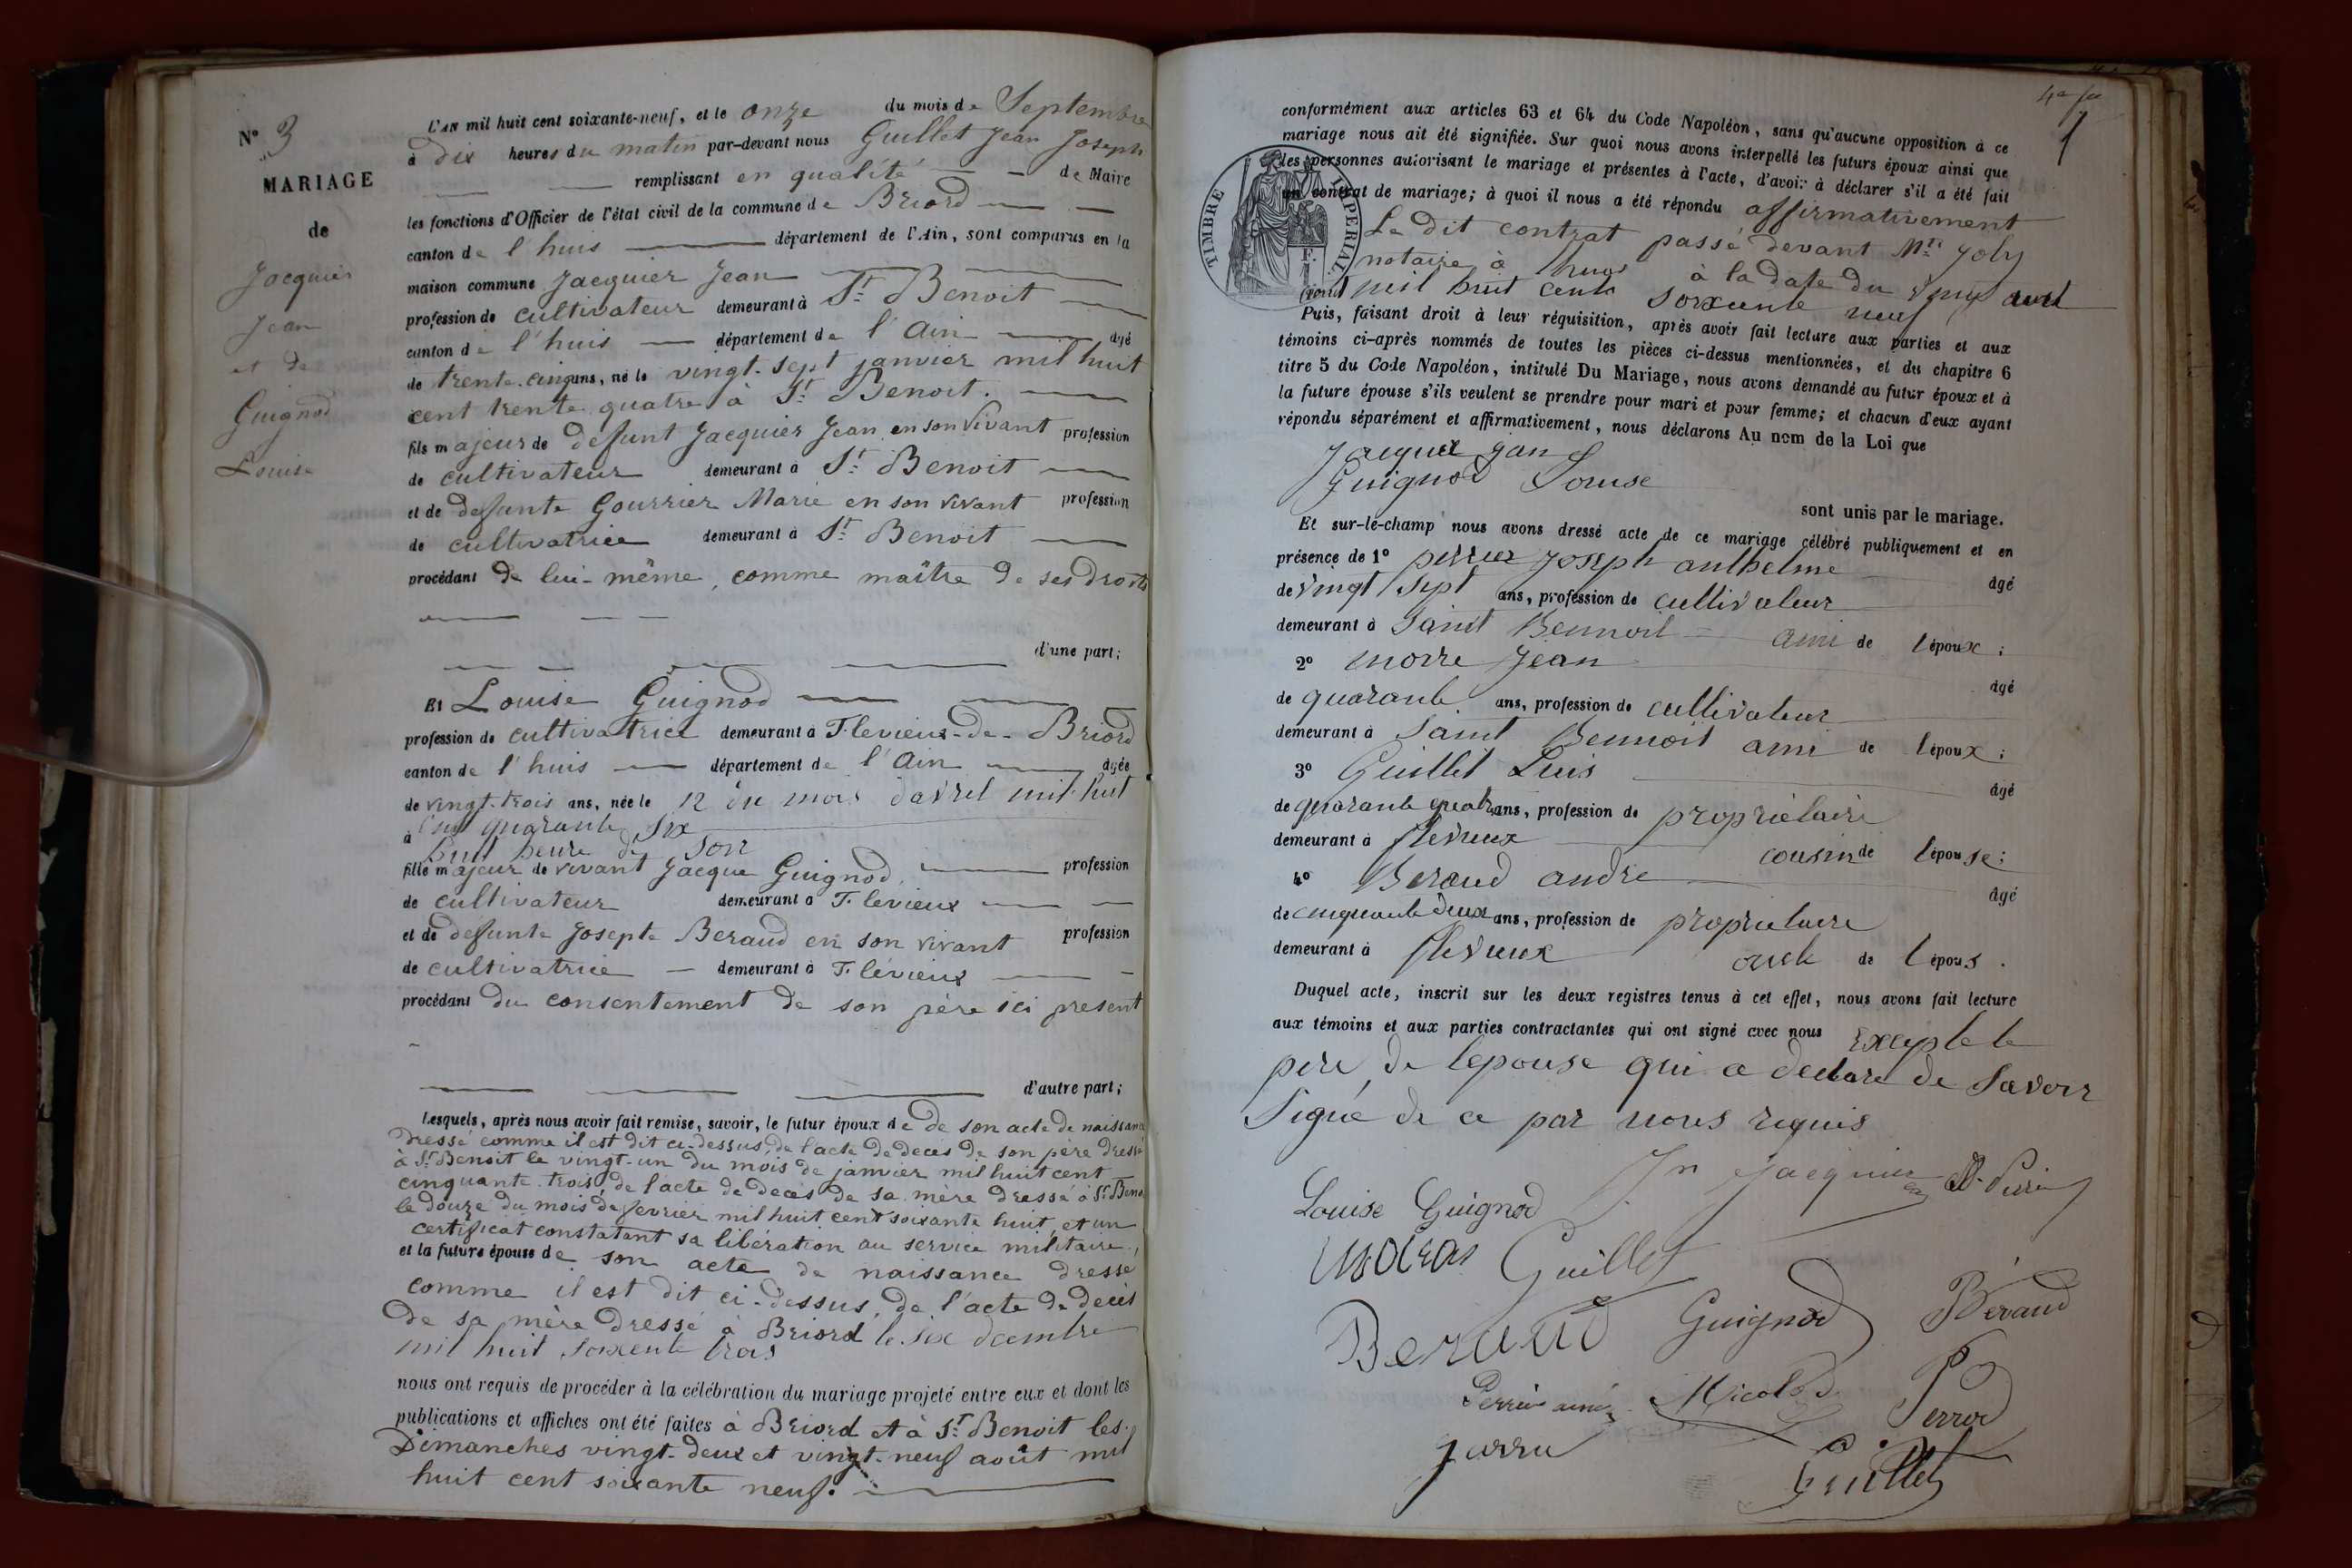 N° 3
MARIAGE
de
Jacquier
Jean
et de
Guignod
Louise
L'AN mil huit cent soixante-neuf, et le onze du mois de Septembre
à dix heures du matin par-devant nous Guillet Jean Joseph
remplissant en qualité de Maire
les fonctions d'Officier de l'état civil de la commune de Briord
canton de l'huis département de l'Ain, sont comparus en la
maison commune Jacquier Jean
profession de cultivateur demeurant à St Benoit
canton de l'huis département de l'Ain âgé
de trente-cinq ans, né le vingt-sept janvier mil huit
cent trente quatre à St Benoit.
fils majeur de defunt Jacquier Jean en son vivant profession
de cultivateur demeurant à St Benoit
et de defunte Gourrier Marie en son vivant profession
de cultivatrice demeurant à St Benoit
procédant de lui-même, comme maître de ses droits
d'une part;
Et Louise Guignod
profession de cultivatrice demeurant à Flevieux-de-Briord
canton de l'huis département de l'Ain âgée
de vingt-trois ans, née le 12 du mois davril mil huit
à cent quarante six
huit heure du soir
fille majeur de vivant Jacque Guignod, profession
de cultivateur demeurant à Flevieux
et de defunte Josepte Beraud en son vivant profession
de cultivatrice demeurant à Flévieux
procédant du consentement de son père ici present
d'autre part;
Lesquels, après nous avoir fait remise, savoir, le futur époux de de son acte de naissance
dressé comme il est dit ci-dessus, de l'acte de deces de son père dressé
à St Benoit le vingt-un du mois de janvier mil huit cent
cinquante-trois, de l'acte de deces de sa mère dressé à St Beno
le douze du mois de fevrier mil huit cent soixante huit, et un
certificat constatant sa liberation au service militaire,
et la future épouse de son acte de naissance dressé
comme il est dit ci-dessus, de l'acte de deces
de sa mère dressé à Briord le six decembre
mil huit soixente trois
nous ont requis de procéder à la célébration du mariage projeté entre eux et dont les
publications et affiches ont été faites à Briord et à St Benoit les
Dimanches vingt-deux et vingt-neuf août mil
huit cent soixante neuf.
conformément aux articles 63 et 64 du Code Napoléon, sans qu'aucune opposition à ce
mariage nous ait été signifiée. Sur quoi nous avons interpellé les futurs époux ainsi que
les personnes autorisant le mariage et présentes à l'acte, d'avoir à déclarer s'il a été fait
un contrat de mariage; à quoi il nous a été répondu affirmativement
TIMBRE IMPERIAL.
Le dit contrat passé devant Mtr Joly
notaire à lhuis à la date du août
mil huit cents soixente neuf
Puis, faisant droit à leur réquisition, après avoir fait lecture aux parties et aux
témoins ci-après nommés de toutes les pièces ci-dessus mentionnées, et du chapitre 6
titre 5 du Code Napoléon, intitulé Du Mariage, nous avons demandé au futur époux et à
la future épouse s'ils veulent se prendre pour mari et pour femme; et chacun d'eux ayant
répondu séparément et affirmativement, nous déclarons Au nom de la Loi que
Jacquie Jean
Guignod Louise
sont unis par le mariage.
Et sur-le-champ nous avons dressé acte de ce mariage célébré publiquement et en
présence de 1° perrier Joseph anthelme âgé
de vingt sept ans, profession de cultivateur
demeurant à Saint Bennoit ami de lépoux;
2° morre Jean âgé
de quarante ans, profession de cultivateur
demeurant à Saint Bennoit ami de lépoux;
3° Guillet Luis âgé
de quarante quatre ans, profession de propriétaire
demeurant à flevieux cousin de lépouse;
4° Beraud andre âgé
de cinquante deux ans, profession de proprietaire
demeurant à flevieux oncle de lépous.
Duquel acte, inscrit sur les deux registres tenus à cet effet, nous avons fait lecture
aux témoins et aux parties contractantes qui ont signé avec nous excepte le
pere de lepouse qui a declare de savoir
Signé de ce par nous requis
Louise Guignod Jn Jacquier
Guillet
Beraud Guignod Béraud
Perrin ainé Micolod Perrod
Guillet